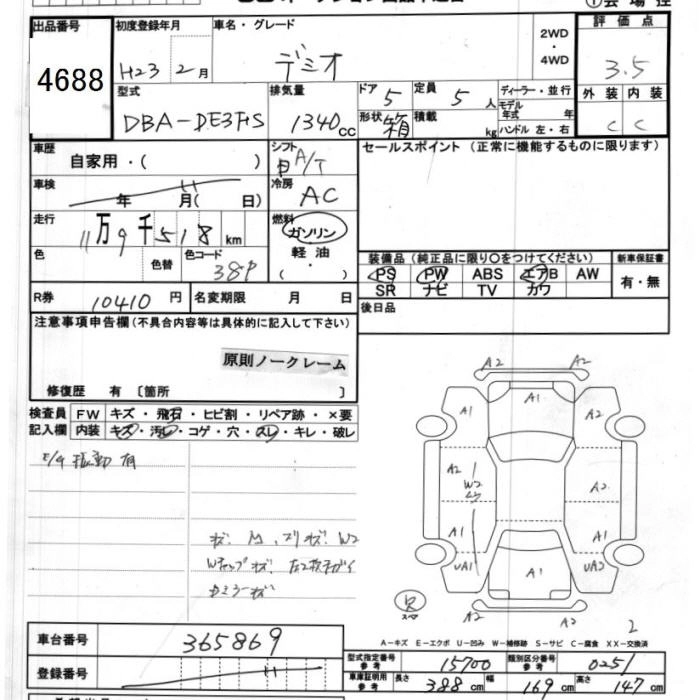 出品番号 初度登録年月 車名・グレード 2WD・4WD 評価点
4688 H23 2月 デミオ 3.5
型式 排気量 ドア 5 定員 5人 ディーラー・並行 外装 内装
DBA-DE3FS 1340cc 形状 箱 積載 kg モデル年式 年 C C
ハンドル 左・右
車歴 自家用・( ) シフト A/T セールスポイント(正常に機能するものに限ります)
車検 年 月( 日) 冷房 AC
走行 11万9千518km 燃料 ガソリン
色 色替 色コード 38P 軽油 ( ・ )
装備品(純正品に限り○をつけてください) 新車保証書
PS PW ABS エアB AW 有・無
SR ナビ TV カワ
R券 10410円 名変期限 月 日 後日品
注意事項申告欄(不具合内容等は具体的に記入して下さい)
原則ノークレーム
修復歴 有〔箇所 〕
検査員 FW キズ・飛石・ヒビ割・リペア跡・×要
記入欄 内装 キズ・汚レ・コゲ・穴・スレ・キレ・破レ
E/G 振動 有
A2 A2
A1 A1 A2
A2 W2 A2
A1 A1
UA1 A1 UA2
A2 A2
スペア 2
A-キズ E-エクボ U-凹み W-補修跡 S-サビ C-腐食 XX-交換済
車台番号 365869
登録番号
型式指定番号参考 15700 類別区分番号参考 0251
車庫証明用参考 長さ 388cm 幅 169cm 高さ 147cm